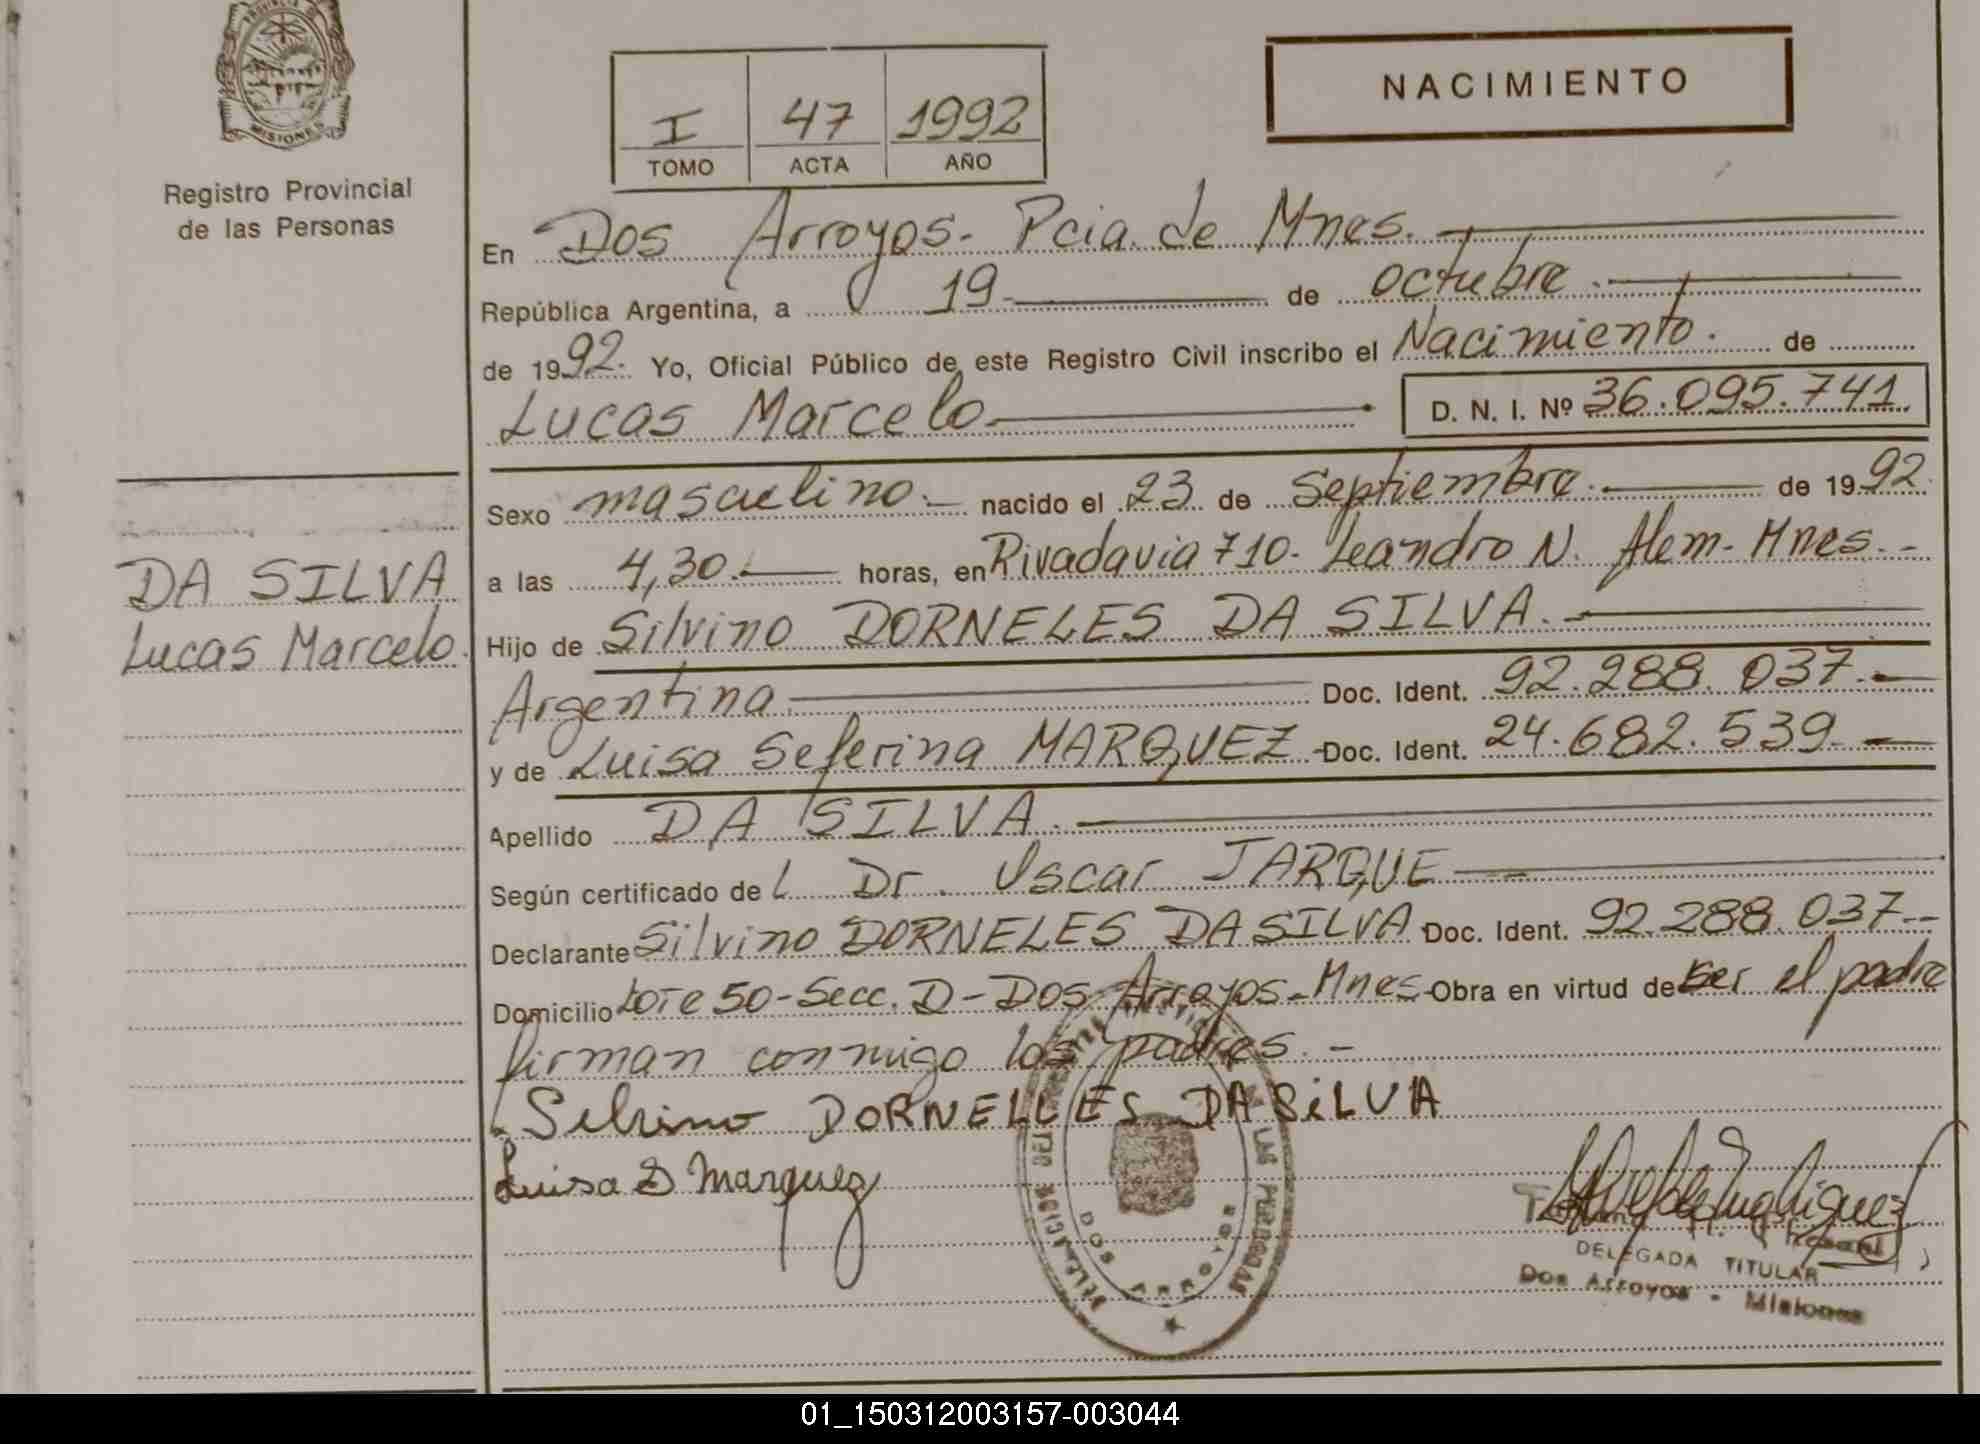 MISIONES
Registro Provincial
de las Personas
I 47 1992
TOMO ACTA AÑO
NACIMIENTO
En Dos Arroyos- Pcia. de Mnes.
República Argentina, a 19 de octubre.
de 1992. Yo, Oficial Público de este Registro Civil inscribo el Nacimiento. de
Lucas Marcelo D. N. I. Nº 36.095.741.
Sexo masculino. nacido el 23 de Septiembre. de 1992.
DA SILVA
Lucas Marcelo.
a las 4,30. horas, en Rivadavia 710- Leandro N. Alem- Mnes.-
Hijo de Silvino DORNELES DA SILVA.
Argentina Doc. Ident. 92.288.037.-
y de Luisa Seferina MARQUEZ - Doc. Ident. 24.682.539.-
Apellido DA SILVA.
Según certificado de L Dr. Oscar JARQUE
Declarante Silvino DORNELES DA SILVA Doc. Ident. 92.288.037.--
Domicilio Lote 50-Secc. D-Dos Arroyos-Mnes- Obra en virtud de ser el padre
firman conmigo los padres.-
Silvino DORNELLES DA SiLVA
Luisa S Marquez
DOS ARROYOS
LAS PERSONAS
DELEGADA TITULAR
Dos Arroyos - Misiones
01_150312003157-003044